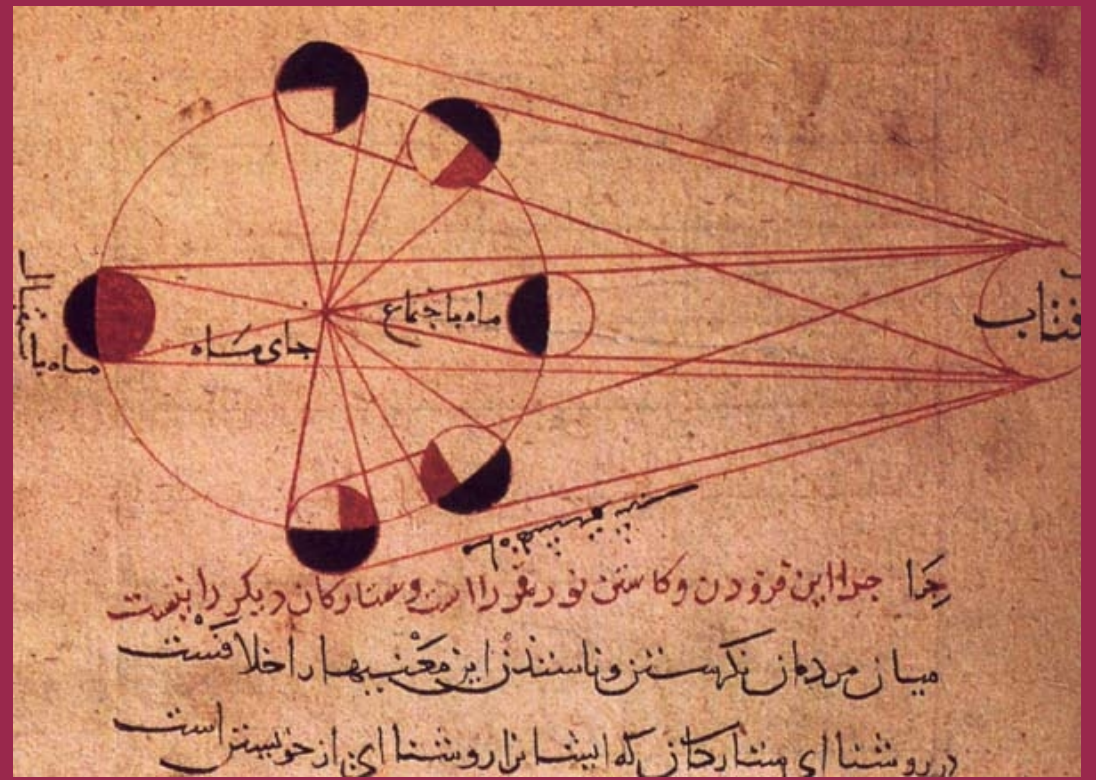 آفتاب
ماه باجتماع
جای ماه
ماه باستقبال
چرا چرا این فزودن و کاستن نور قمر را است و ستارکان دیکر را نیست
میان مردمان نکرستن و ناسنندن این معنیها را خلافست
در روشنا ای ستارکان که ایشانرا روشنا ای از خویشتن است